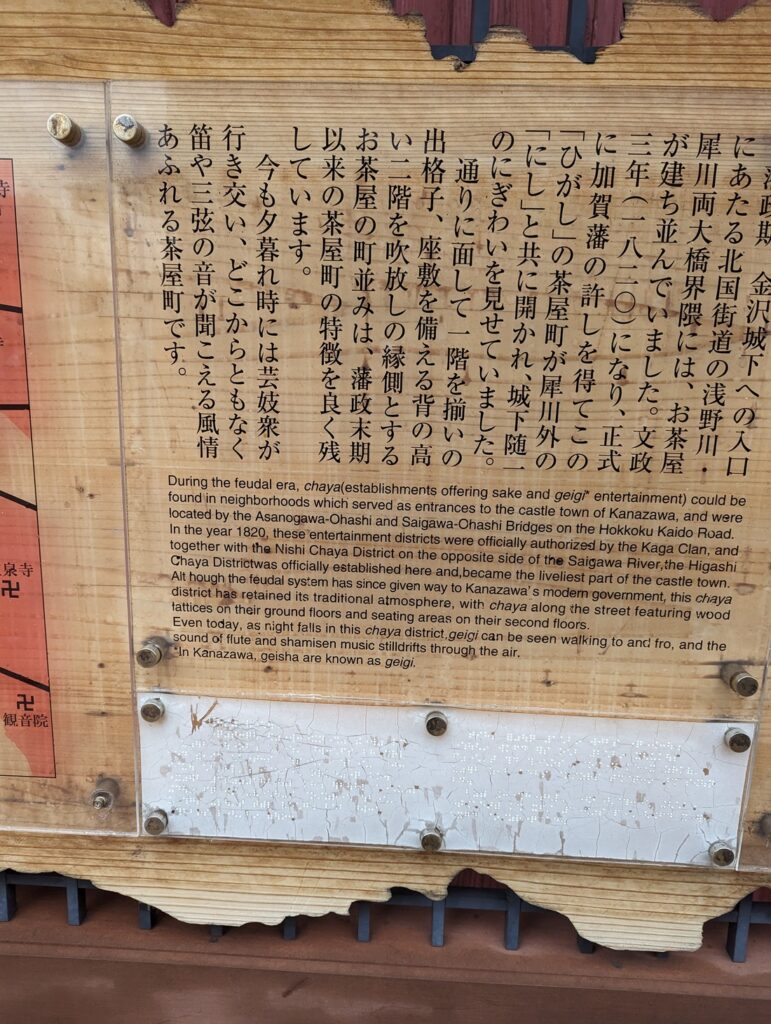 藩政期 金沢城下への入口
にあたる北国街道の浅野川・
犀川両大橋界隈には、お茶屋
が建ち並んでいました。文政
三年(一八二〇)になり、正式
に加賀藩の許しを得てこの
「ひがし」の茶屋町が犀川外の
「にし」と共に開かれ、城下随一
のにぎわいを見せていました。
通りに面して一階を揃いの
出格子、座敷を備える背の高
い二階を吹放しの縁側とする
お茶屋の町並みは、藩政末期
以来の茶屋町の特徴を良く残
しています。
今も夕暮れ時には芸妓衆が
行き交い、どこからともなく
笛や三弦の音が聞こえる風情
あふれる茶屋町です。
During the feudal era, chaya(establishments offering sake and geigi* entertainment) could be
found in neighborhoods which served as entrances to the castle town of Kanazawa, and were
located by the Asanogawa-Ohashi and Saigawa-Ohashi Bridges on the Hokkoku Kaido Road.
In the year 1820, these entertainment districts were officially authorized by the Kaga Clan, and
together with the Nishi Chaya District on the opposite side of the Saigawa River,the Higashi
Chaya Districtwas officially established here and,became the liveliest part of the castle town.
Alt hough the feudal system has since given way to Kanazawa's modern government, this chaya
district has retained its traditional atmosphere, with chaya along the street featuring wood
lattices on their ground floors and seating areas on their second floors.
Even today, as night falls in this chaya district,geigi can be seen walking to and fro, and the
sound of flute and shamisen music stilldrifts through the air.
*In Kanazawa, geisha are known as geigi.
寺
泉寺
卍
卍
観音院